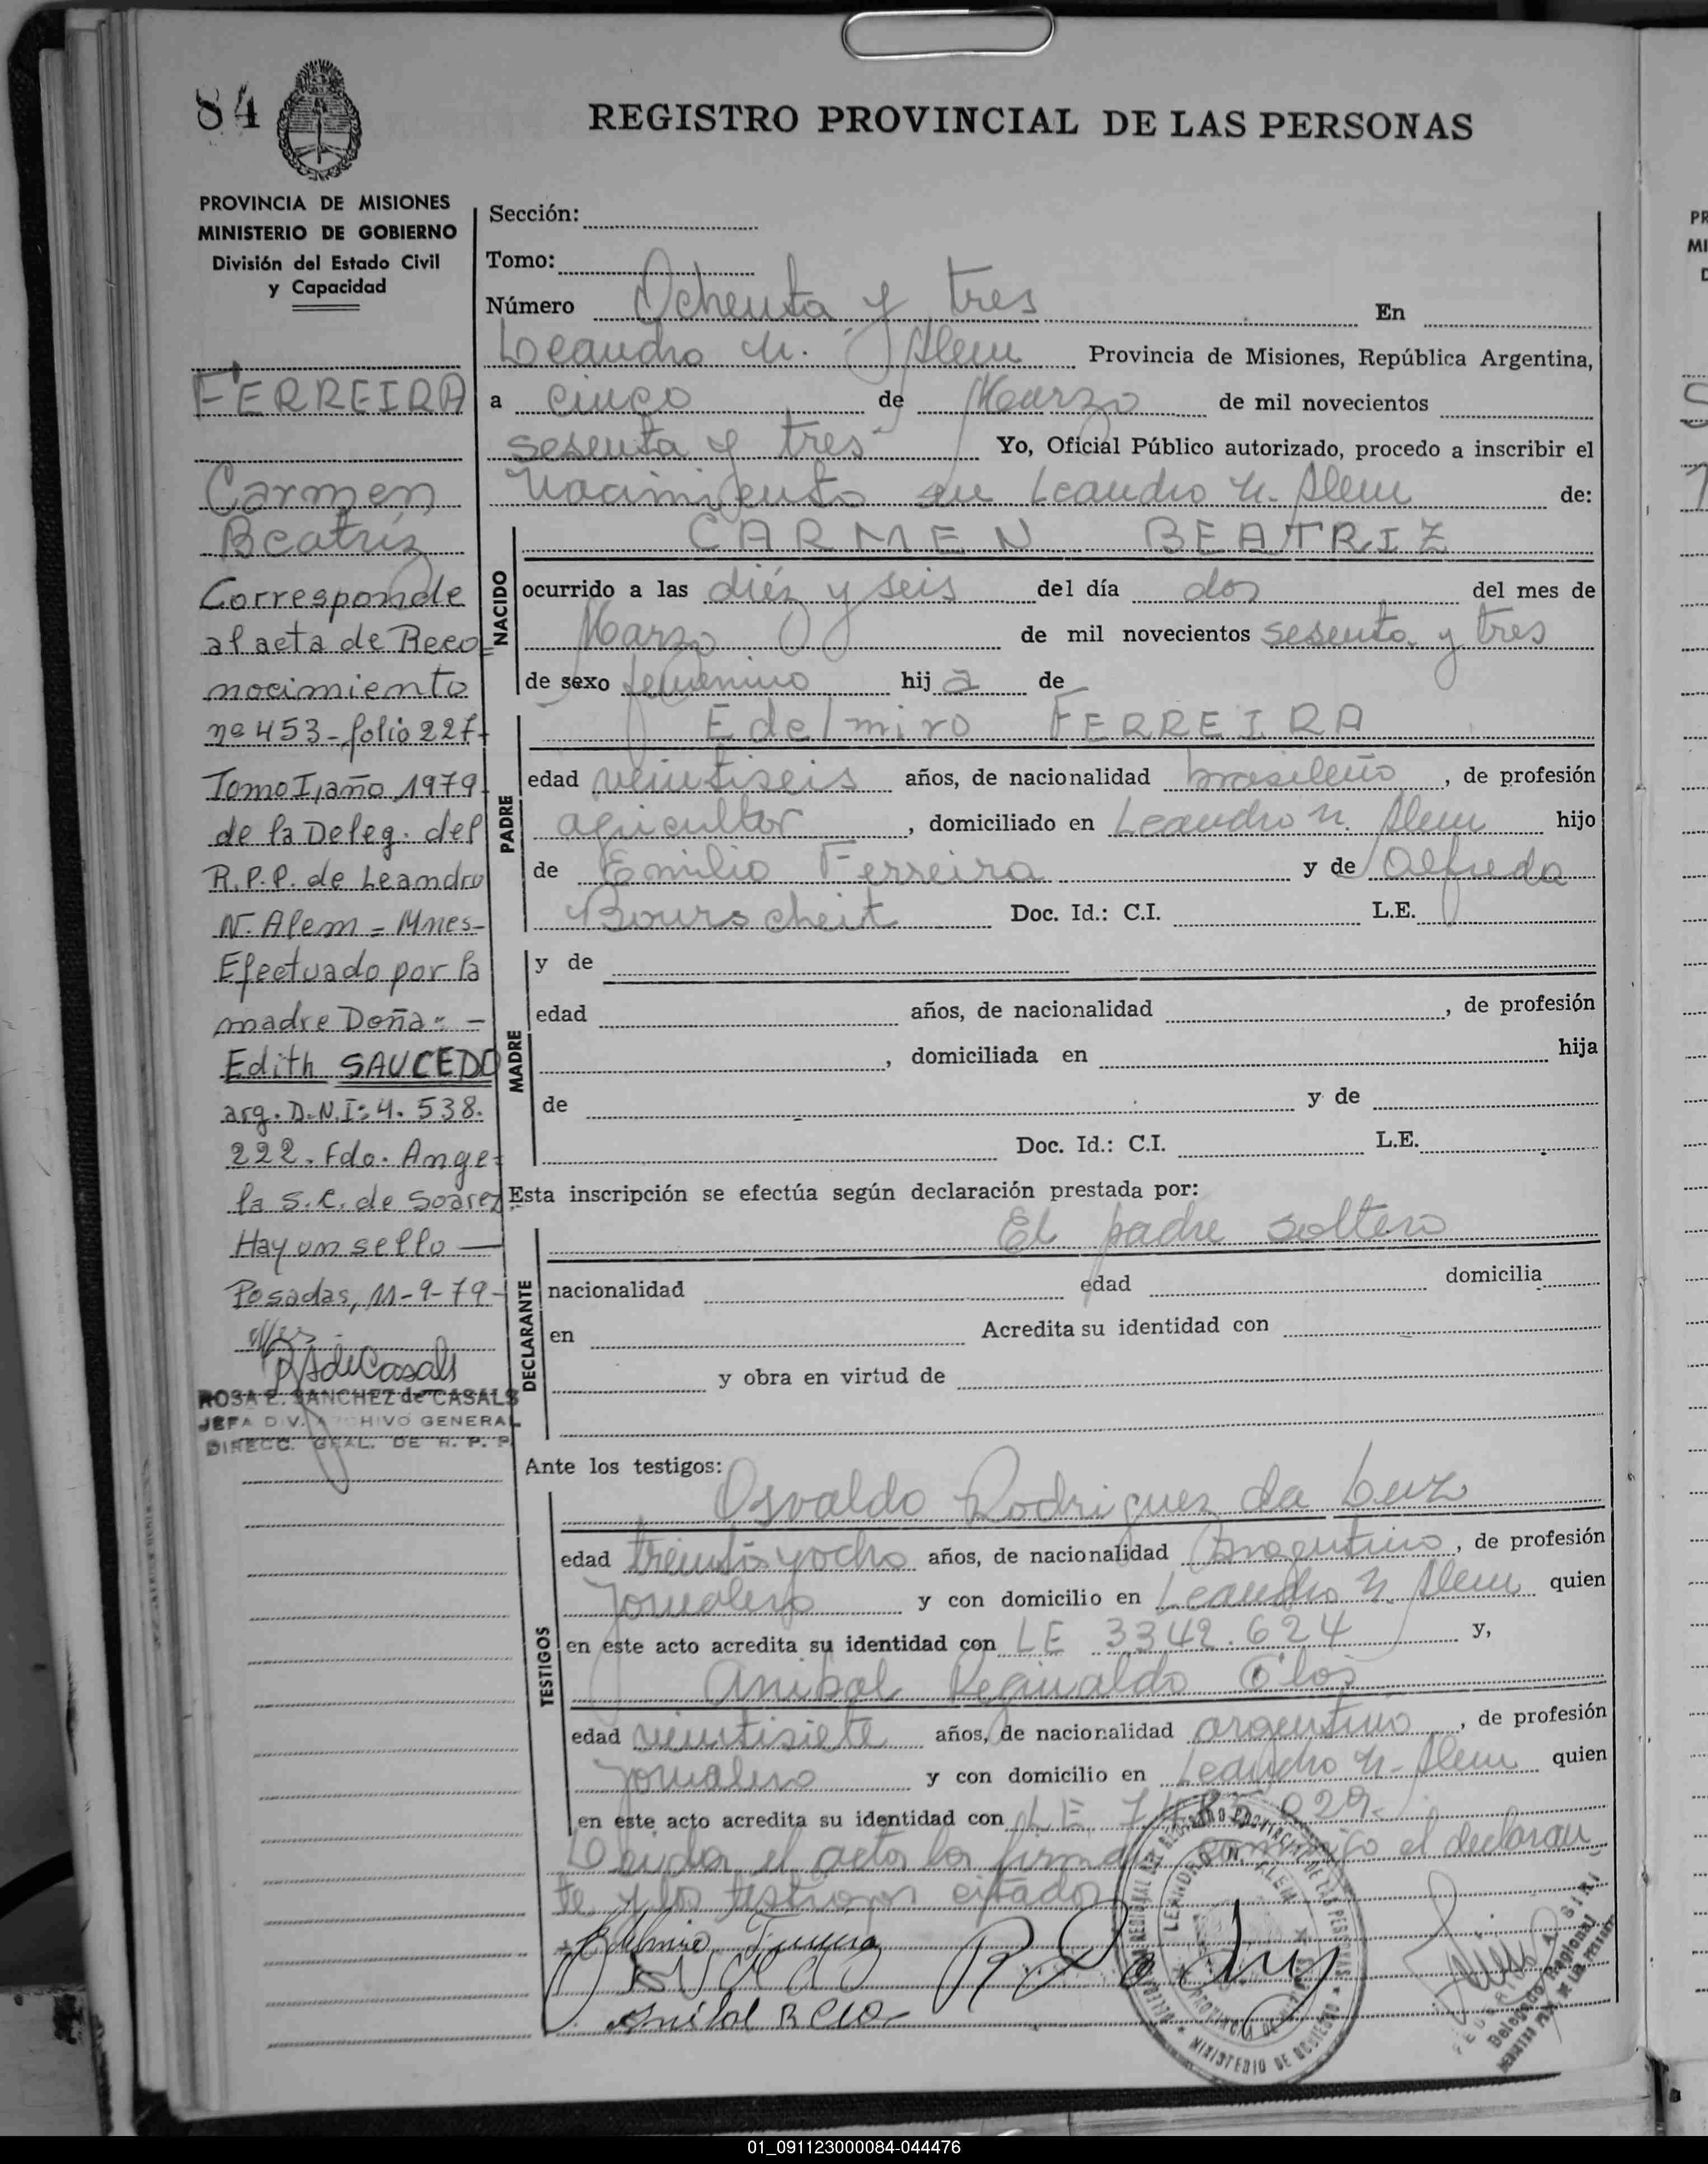 84
REGISTRO PROVINCIAL DE LAS PERSONAS
PROVINCIA DE MISIONES
MINISTERIO DE GOBIERNO
División del Estado Civil
y Capacidad
FERREIRA
Carmen
Beatriz
Corresponde
al acta de Reco
nocimiento
nº 453-folio 227-
Tomo I, año 1979
de la Deleg. del
R.P.P. de Leandro
N. Alem = Mnes-
Efectuado por la
madre Doña: -
Edith SAUCEDO
arg. D.N.I: 4.538.
222. Fdo. Ange-
la S.C. de Soarez
Hay un sello —
Posadas, 11-9-79-
RSdeCasals
ROSA E. SANCHEZ de CASALS
JEFA DIV. ARCHIVO GENERAL
DIRECC. GRAL. DE R. P. P.
Sección:
Tomo:
Número Ochenta y tres En
Leandro N. Alem Provincia de Misiones, República Argentina,
a cinco de Marzo de mil novecientos
sesenta y tres Yo, Oficial Público autorizado, procedo a inscribir el
Nacimiento en Leandro N. Alem de:
NACIDO
CARMEN BEATRIZ
ocurrido a las diéz y seis del día dos del mes de
Marzo de mil novecientos sesenta y tres
de sexo femenino hij a de
PADRE
Edelmiro FERREIRA
edad veintiseis años, de nacionalidad brasileño, de profesión
agricultor, domiciliado en Leandro N. Alem hijo
de Emilio Ferreira y de Alfreda
Bourscheit Doc. Id.: C.I. L.E.
MADRE
y de
edad años, de nacionalidad , de profesión
, domiciliada en hija
de y de
Doc. Id.: C.I. L.E.
Esta inscripción se efectúa según declaración prestada por:
DECLARANTE
El padre soltero
nacionalidad edad domicilia
en Acredita su identidad con
y obra en virtud de
Ante los testigos:
TESTIGOS
Osvaldo Rodriguez da Luz
edad treinta y ocho años, de nacionalidad Argentino, de profesión
Jornalero y con domicilio en Leandro N. Alem quien
en este acto acredita su identidad con LE 3342.624 y,
Anibal Reginaldo
edad veintisiete años, de nacionalidad argentino, de profesión
Jornalero y con domicilio en Leandro N. Alem quien
en este acto acredita su identidad con LE 029.
Leida el acta la firma conmigo el declaran
te y los testigos citados
Edelmiro Ferreira
Osvaldo
Anibal R
DELEGACION REGIONAL DEL REGISTRO PROVINCIAL DE LAS PERSONAS
LEANDRO N. ALEM
PROVINCIA DE MISIONES
MINISTERIO DE GOBIERNO
Delegado Regional
REGISTRO PROV. DE LAS PERSONAS
01_091123000084-044476